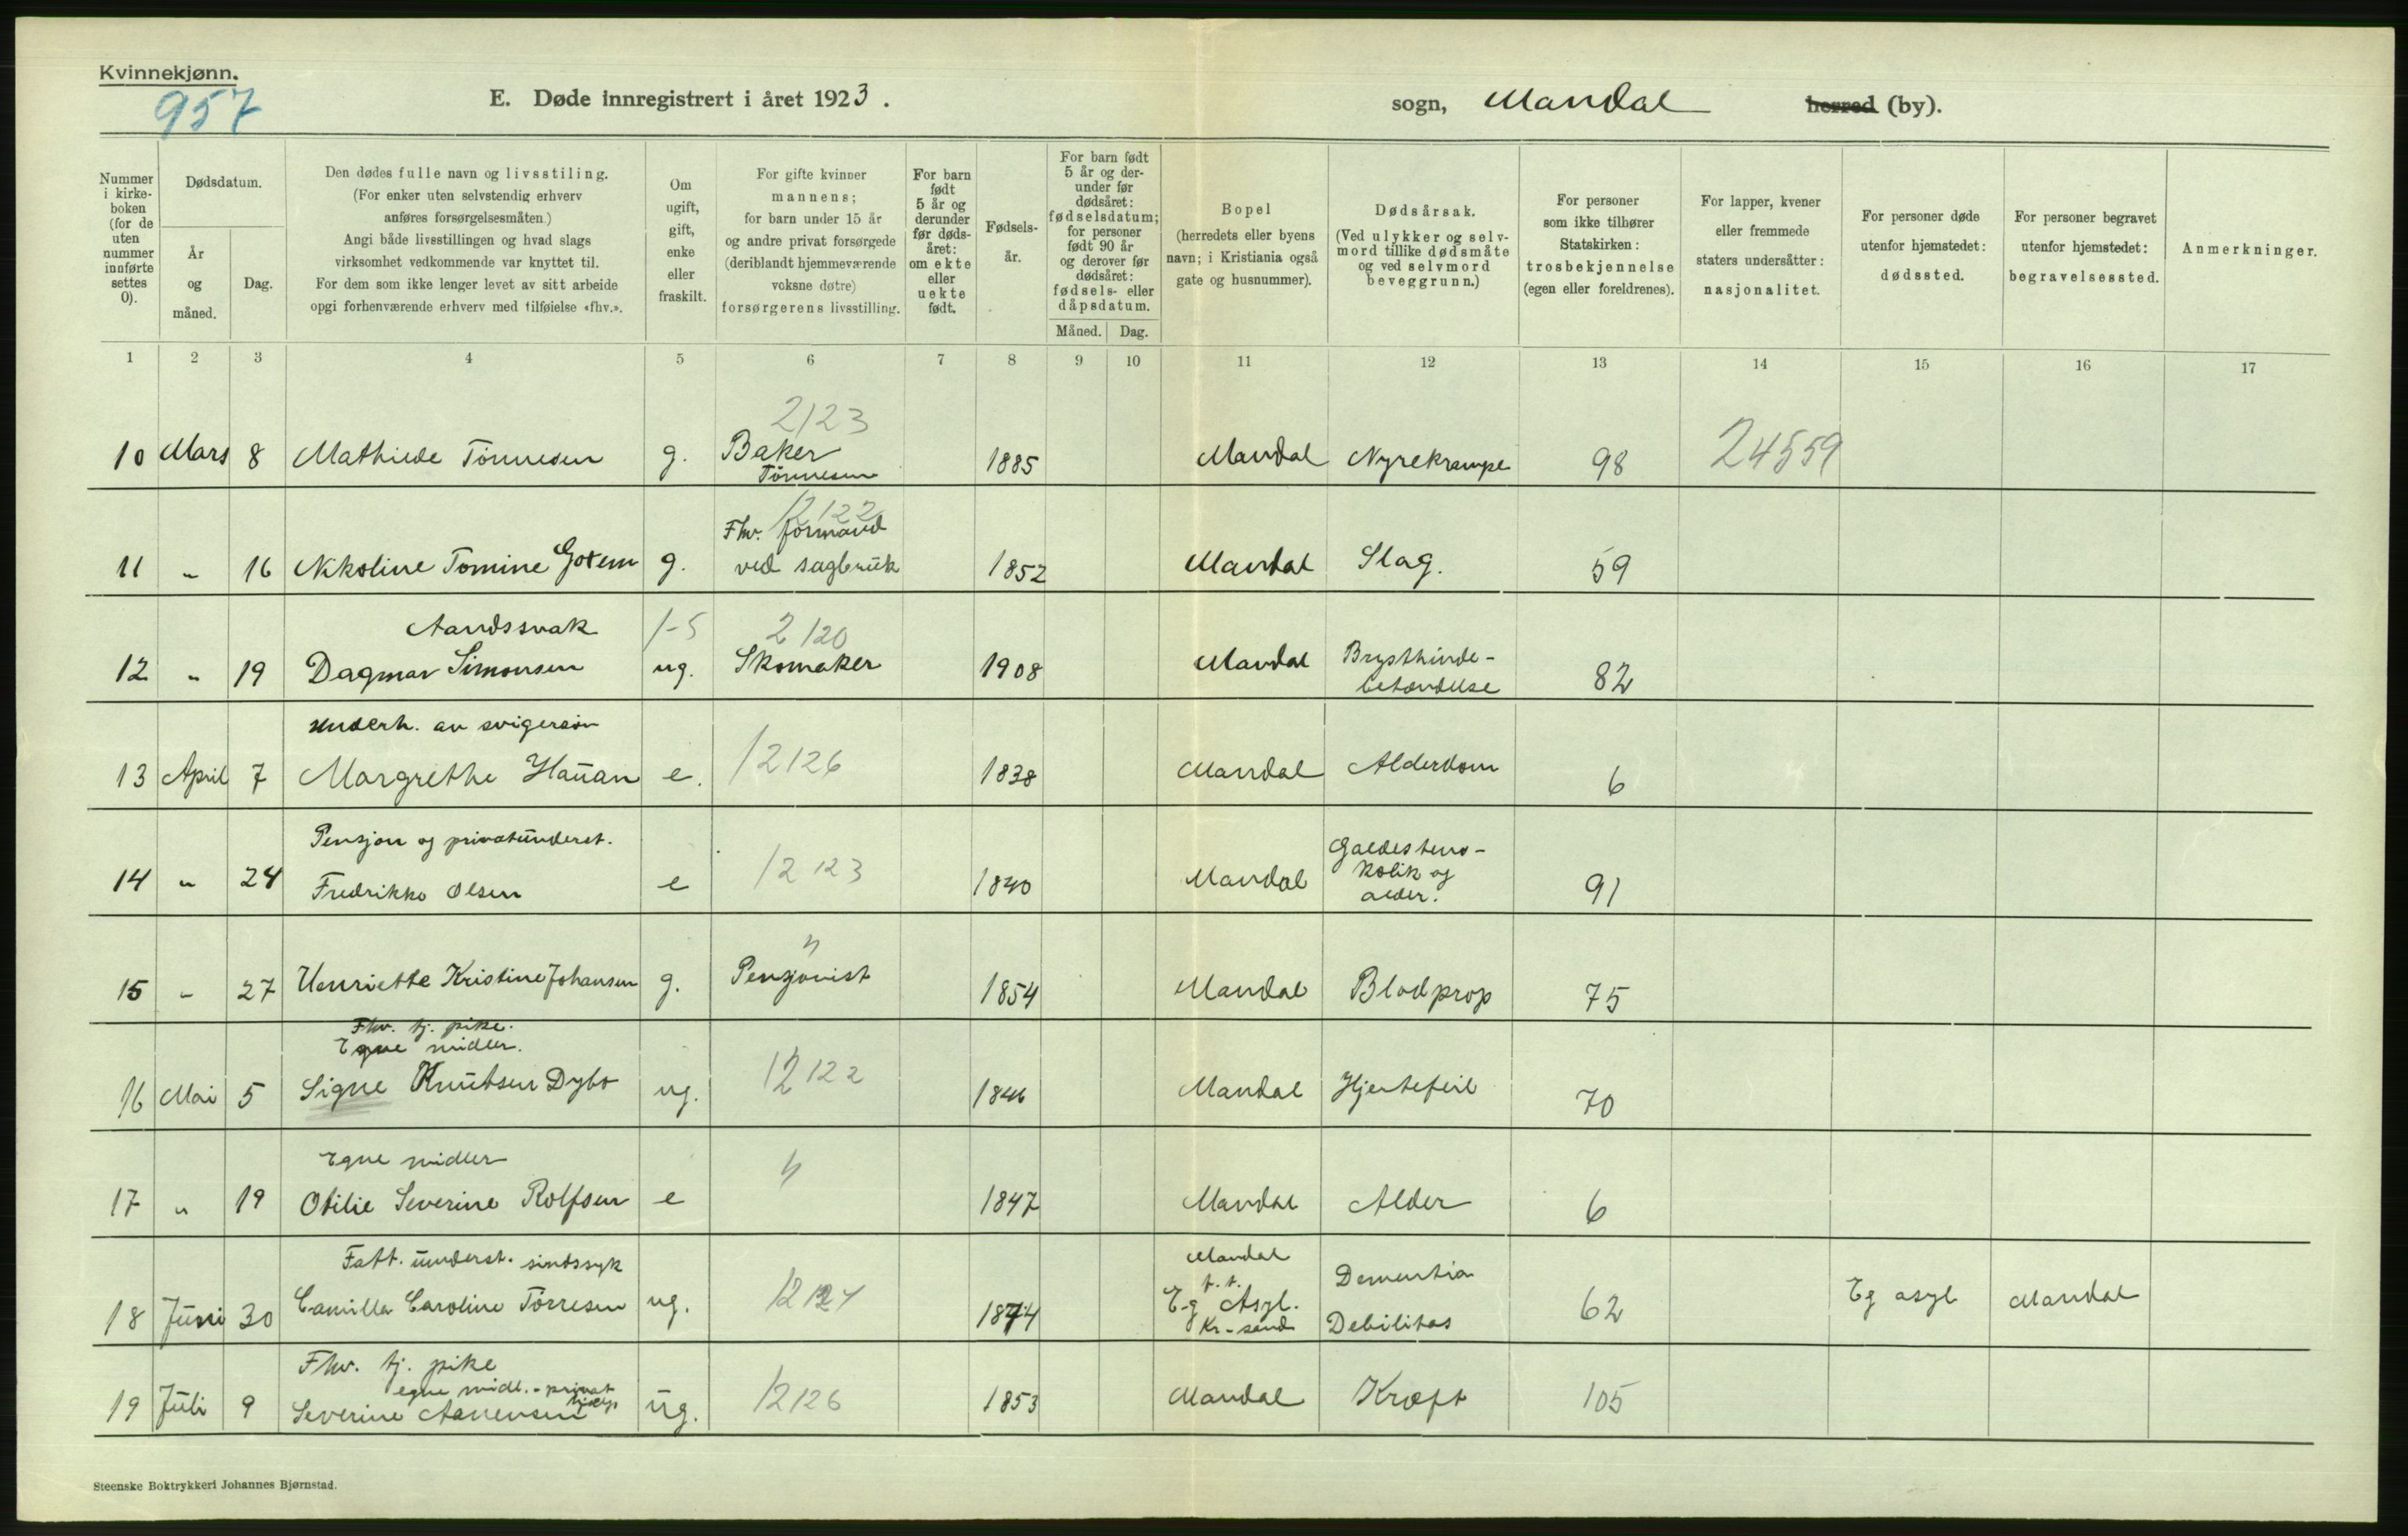 Kvinnekjønn.
957
E. Døde innregistrert i året 1923.
sogn, Mandal herred (by).
Nummer i kirke-boken (for de uten nummer innførte settes 0).
Dødsdatum.
År og måned.
Dag.
Den dødes fulle navn og livsstiling.
(For enker uten selvstendig erhverv
anføres forsørgelsesmåten.)
Angi både livsstillingen og hvad slags
virksomhet vedkommende var knyttet til.
For dem som ikke lenger levet av sitt arbeide
opgi forhenværende erhverv med tilføielse «fhv.».
Om ugift, gift, enke eller fraskilt.
For gifte kvinner
mannens;
for barn under 15 år
og andre privat forsørgede
(deriblandt hjemmeværende
voksne døtre)
forsørgerens livsstilling.
For barn født 5 år og derunder før døds-året: om ekte eller uekte født.
Fødsels-år.
For barn født 5 år og der-under før dødsåret: fødselsdatum; for personer født 90 år og derover før dødsåret: fødsels- eller dåpsdatum.
Måned. Dag.
Bopel
(herredets eller byens
navn; i Kristiania også
gate og husnummer).
Dødsårsak.
(Ved ulykker og selv-
mord tillike dødsmåte
og ved selvmord
beveggrunn.)
For personer
som ikke tilhører
Statskirken:
trosbekjennelse
(egen eller foreldrenes).
For lapper, kvener
eller fremmede
staters undersåtter:
nasjonalitet.
For personer døde
utenfor hjemstedet:
dødssted.
For personer begravet
utenfor hjemstedet:
begravelsessted.
Anmerkninger.
1 2 3 4 5 6 7 8 9 10 11 12 13 14 15 16 17
2123
10 Mars 8 Mathilde Tönnesen g. Baker 1885 Mandal Nyrekrampe 98 24559
Tönnesen
12122
Fhv. formand
11 " 16 Nikoline Tomine Gotem g. ved sagbruk 1852 Mandal Slag. 59
Aandssvak 1-5 2 120
12 " 19 Dagmar Simonsen ug. Skomaker 1908 Mandal Brysthinde-
betændelse 82
underh. av svigersön
13 April 7 Margrethe Hauan e. 12126 1838 Mandal Alderdom 6
Pensjon og privatunderst.
14 " 24 Fredrikke Olsen e 12 123 1840 Mandal Galdestens-
kolik og
alder. 91
15 " 27 Henriette Kristine Johansen g. Pensjonist 1854 Mandal Blodprop 75
Fhv. tj. pike.
Egne midler.
16 Mai 5 Signe Knutsen Dybo ug. 12122 1846 Mandal Hjertefeil 70
Egne midler
17 " 19 Otilie Severine Rolfsen e 1847 Mandal Alder 6
Fatt. underst. sindssyk
18 Juni 30 Camilla Caroline Törresen ug. 1874 Mandal
t. t.
Eg Asyl.
Kr-sand Dementia
Debilitas 62 Eg asyl Mandal
Fhv. tj. pike
egne midl. - privat
hjælp
19 Juli 9 Severine Aanensen ug. 12126 1853 Mandal Kræft 105
Steenske Boktrykkeri Johannes Bjørnstad.